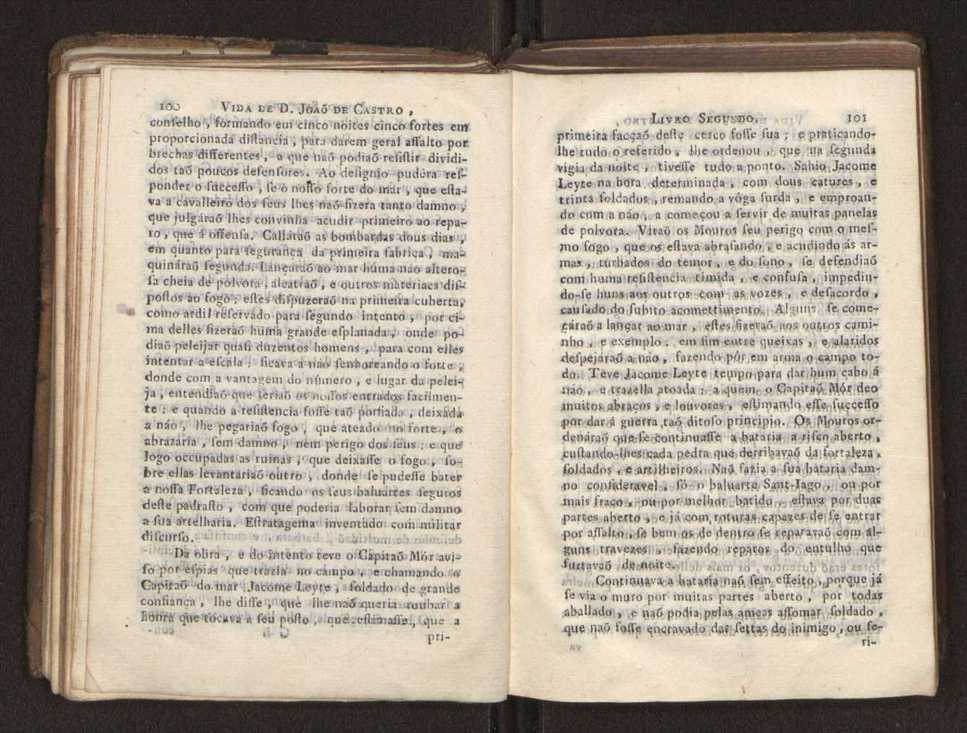 100 VIDA DE D. JOAÕ DE CASTRO,
conſelho, formando em cinco noites cinco fortes em
proporcionada diſtancia, para darem geral aſſalto por
brechas differentes, a que naõ podiaõ reſiſtir dividi-
dos taõ poucos defenſores. Ao deſignio pudéra reſ-
ponder o ſucceſſo, ſe o noſſo forte do mar, que eſta-
va a cavalleiro dos ſeus lhes naõ fizera tanto damno,
que julgáraõ lhes convinha acudir primeiro ao repa-
ro, que á offenſa. Calláraõ as bombardas dous dias,
em quanto para ſegurança da primeira fabrica, ma-
quináraõ ſegunda. Lançáraõ ao mar huma náo altero-
ſa cheia de polvora, alcatraõ, e outros materiaes diſ-
poſtos ao fogo; eſtes diſpuzeraõ na primeira cuberta,
como ardil reſervado para ſegundo intento, por ci-
ma delles fizeraõ huma grande eſplanada, onde po-
diaõ peleijar quaſi duzentos homens, para com elles
intentar a eſcala: ficava a náo ſenhoreando o forte,
donde com a vantagem do número, e lugar da pelei-
ja, entendiaõ que ſeriaõ os noſſos entrados facilmen-
te: e quando a reſiſtencia foſſe taõ porfiada, deixada
a náo, lhe pegariaõ fogo, que ateado no forte, o
abrazaria, ſem damno, nem perigo dos ſeus: e que
logo occupadas as ruinas, que deixaſſe o fogo, ſo-
bre ellas levantariaõ outro, donde ſe pudeſſe bater
a noſſa Fortaleza, ficando os ſeus baluartes ſeguros
deſte padraſto, com que poderia laborar ſem damno
a ſua artelharia. Eſtratagema inventado com militar
diſcurſo.
Da obra, e do intento teve o Capitaõ Mór avi-
ſo por eſpias que trazia no campo, e chamando o
Capitaõ do mar Jacome Leyte, ſoldado de grande
confiança, lhe diſſe, que lhe naõ queria roubar a
honra que tocava a ſeu poſto, que eſtimaſſe, que a
pri-
LIVRO SEGUNDO. 101
primeira facçaõ deſte cerco foſſe ſua; e praticando-
lhe tudo o referido, lhe ordenou, que na ſegunda
vigia da noite, tiveſſe tudo a ponto. Sahio Jacome
Leyte na hora determinada, com dous catures, e
trinta ſoldados, remando a vóga ſurda, e emproan-
do com a náo, a começou a ſervir de muitas panelas
de polvora. Víraõ os Mouros ſeu perigo com o meſ-
mo fogo, que os eſtava abraſando, e acudindo ás ar-
mas, turbados do temor, e do ſono, ſe defendiaõ
com huma reſiſtencia timida, e confuſa, impedin-
do-ſe huns aos outros com as vozes, e deſacordo,
cauſado do ſubito acomettimento. Alguns ſe come-
çáraõ a lançar ao mar, eſtes fizeraõ nos outros cami-
nho, e exemplo: em fim entre queixas, e alaridos
deſpejáraõ a náo, fazendo pôr em arma o campo to-
do. Teve Jacome Leyte tempo para dar hum cabo á
náo, e trazella atoada: a quem o Capitaõ Mór deo
muitos abraços, e louvores, eſtimando eſſe ſucceſſo
por dar á guerra taõ ditoſo principio. Os Mouros or-
denáraõ que ſe continuaſſe a bataria a riſco aberto,
cuſtando-lhes cada pedra que derribavaõ da fortaleza,
ſoldados, e artilheiros. Naõ fazia a ſua bataria dam-
no conſideravel, ſó o baluarte Sant-Iago, ou por
mais fraco, ou por melhor batido, eſtava por duas
partes aberto, e já com roturas capazes de ſe entrar
por aſſalto, ſe bem os de dentro ſe reparavaõ com al-
guns travezes, fazendo repatos do entulho que
furtavaõ de noite.
Continuava a bataria naõ ſem effeito, porque já
ſe via o muro por muitas partes aberto, por todas
aballado, e naõ podia pelas ameas aſſomar ſoldado,
que naõ foſſe encravado das ſettas do inimigo, ou fe-
ri-